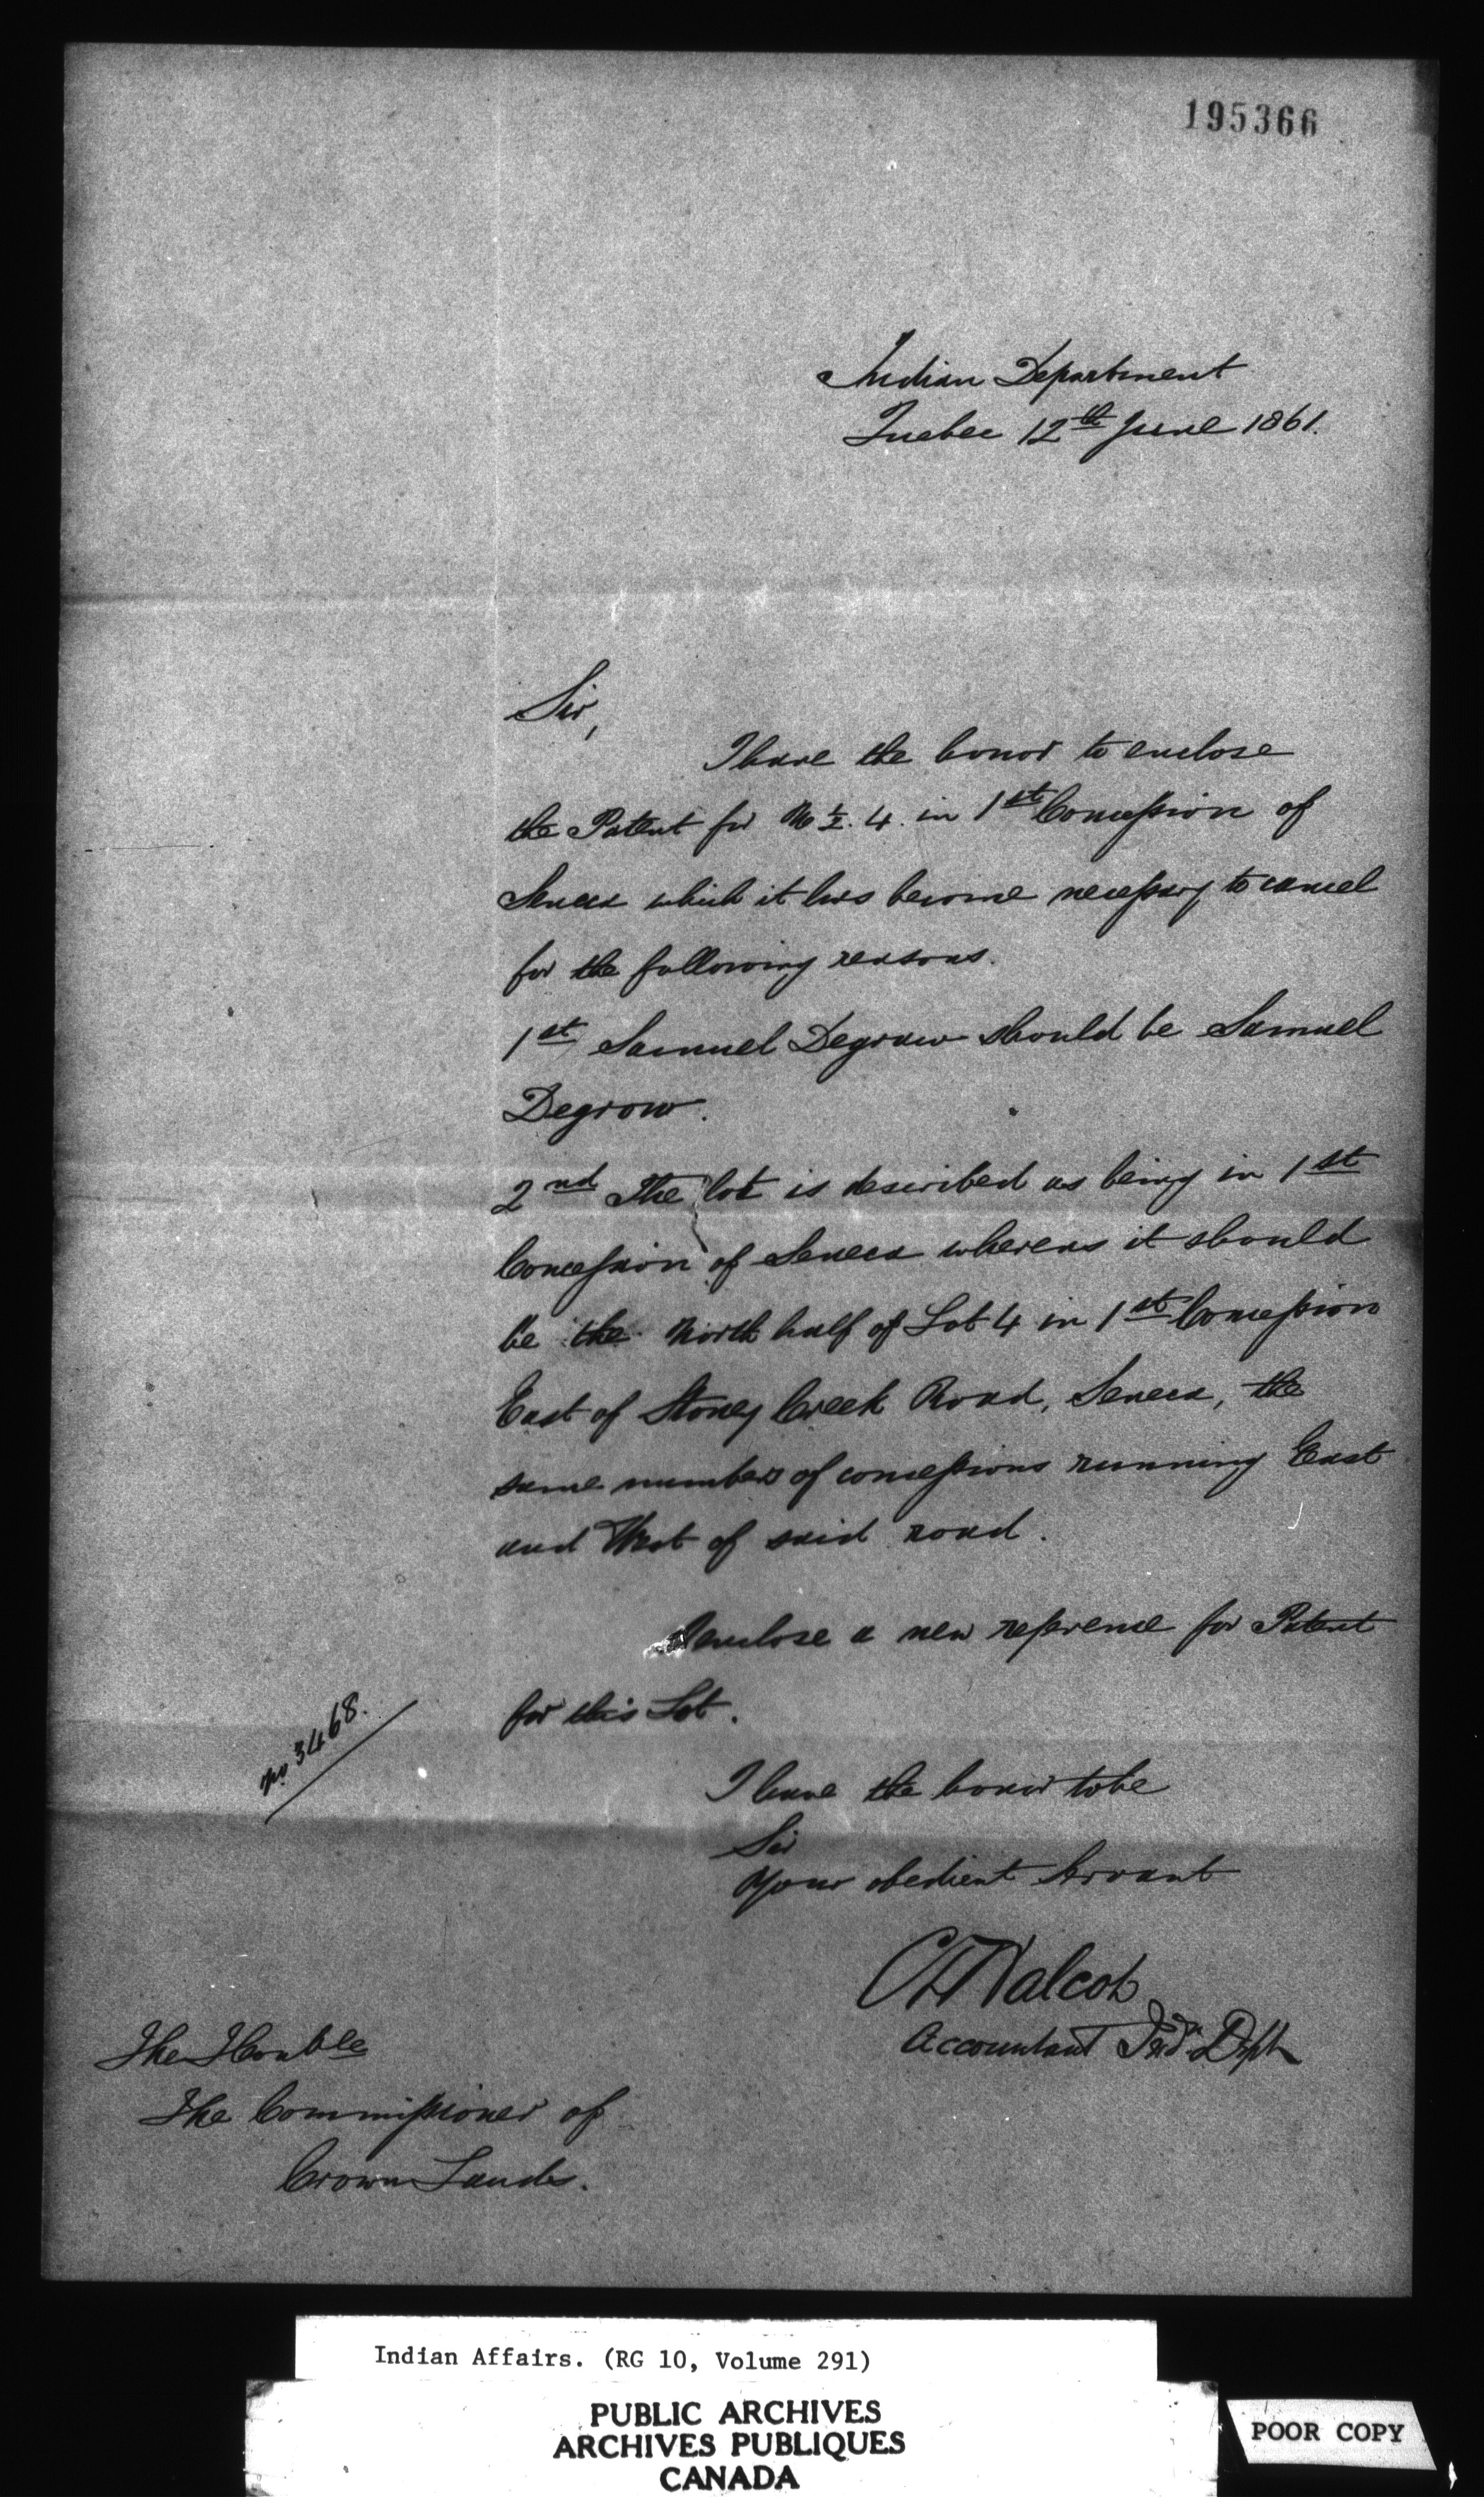 195366
Indian Department
Quebec 12th June 1861.
Sir,
I have the honor to enclose
the Patent for N ½. 4. in 1st Concession of
Seneca which it has become necessary to cancel
for the following reasons.
1st Samuel Degraw should be Samuel
Degrow.
2nd The lot is described as being in 1st
Concession of Seneca whereas it should
be the North half of Lot 4 in 1st Concession
East of Stoney Creek Road, Seneca, the
same number of concessions running East
and West of said road.
I enclose a new reference for Patent
for this Lot.
No 3468.
I have the honor to be
Sir
Your obedient Servant
C T Walcot
Accountant Ind. Dept
The Honble
The Commissioner of
Crown Lands.
Indian Affairs. (RG 10, Volume 291)
PUBLIC ARCHIVES
ARCHIVES PUBLIQUES
CANADA
POOR COPY